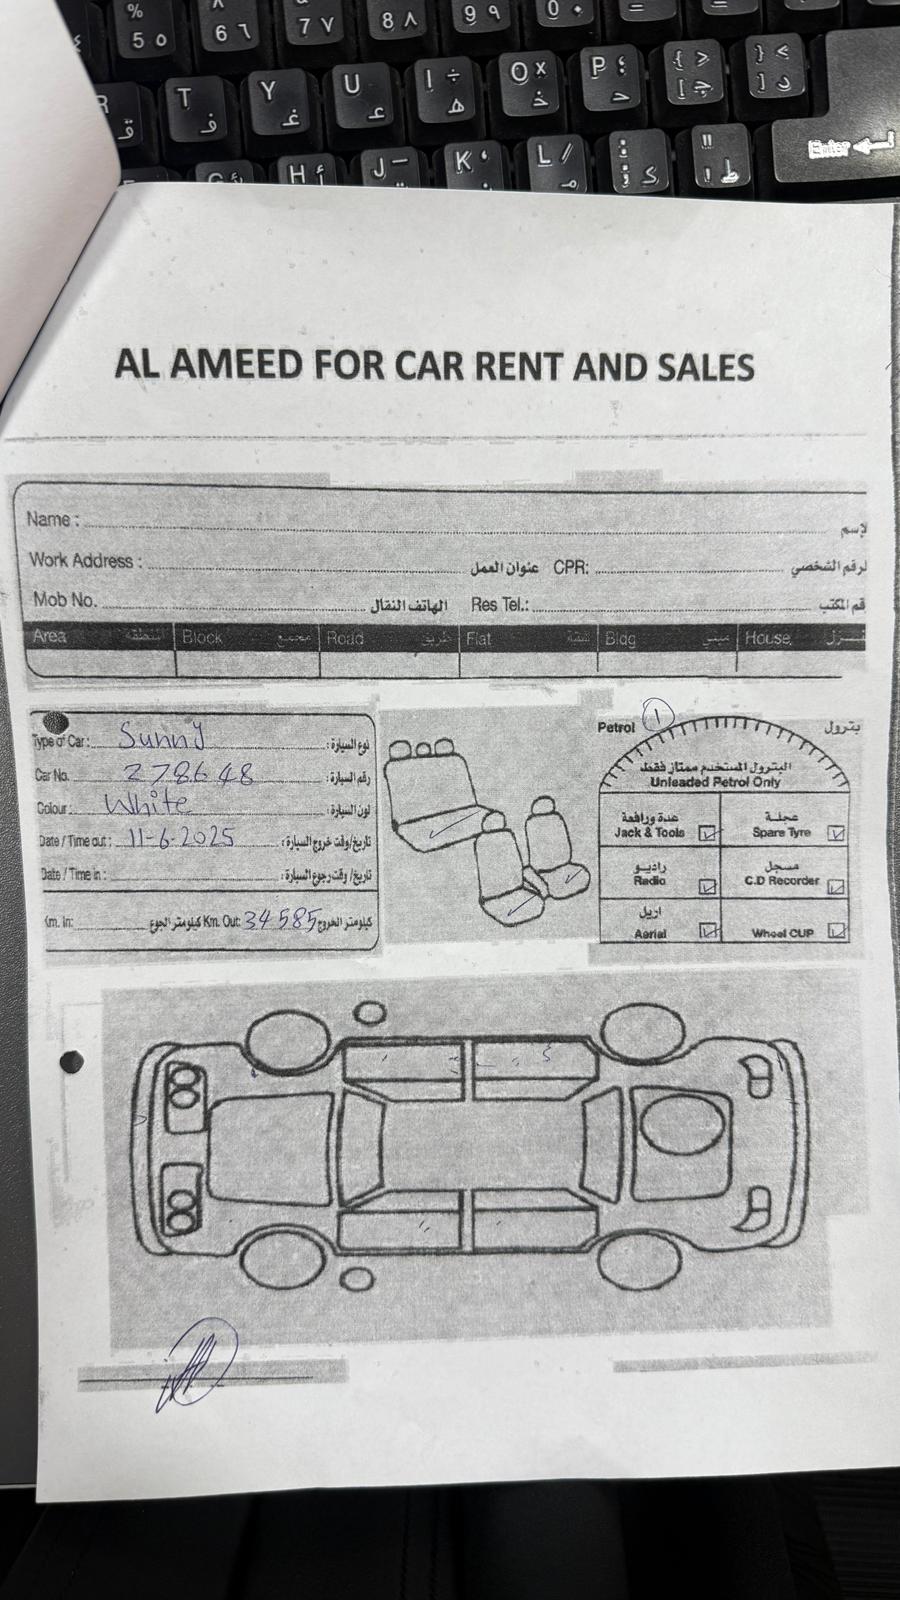 %
5 ٥
6 ٦
7 ٧
8 ٨
9 ٩
0 ٠
R ق
T ف
Y غ
U ع
I ÷ ه
O × خ
P ؛ ح
{ <
[ ج
} >
] د
Enter
H أ
J ـ
K ،
L /
م
: ; ك
" ' ط
AL AMEED FOR CAR RENT AND SALES
Name : لإسم
Work Address : عنوان العمل CPR: لرقم الشخصي
Mob No. الهاتف النقال Res Tel.: قم المكتب
Area المنطقة Block مجمع Road طريق Flat شقة Bldg مبنى House
Type of Car : Sunny نوع السيارة :
Car No. 278648 رقم السيارة :
Colour : White لون السيارة :
Date / Time out : 11-6-2025 تاريخ/وقت خروج السيارة :
Date / Time in : تاريخ/وقت رجوع السيارة :
Km. In: كيلومتر الجوع Km. Out: 34585 كيلومتر الخروج
Petrol 1 بترول
البترول المستخدم ممتاز فقط
Unleaded Petrol Only
عدة ورافعة
Jack & Tools
عجلة
Spare Tyre
راديو
Radio
مسجل
C.D Recorder
اريل
Aerial
Wheel CUP